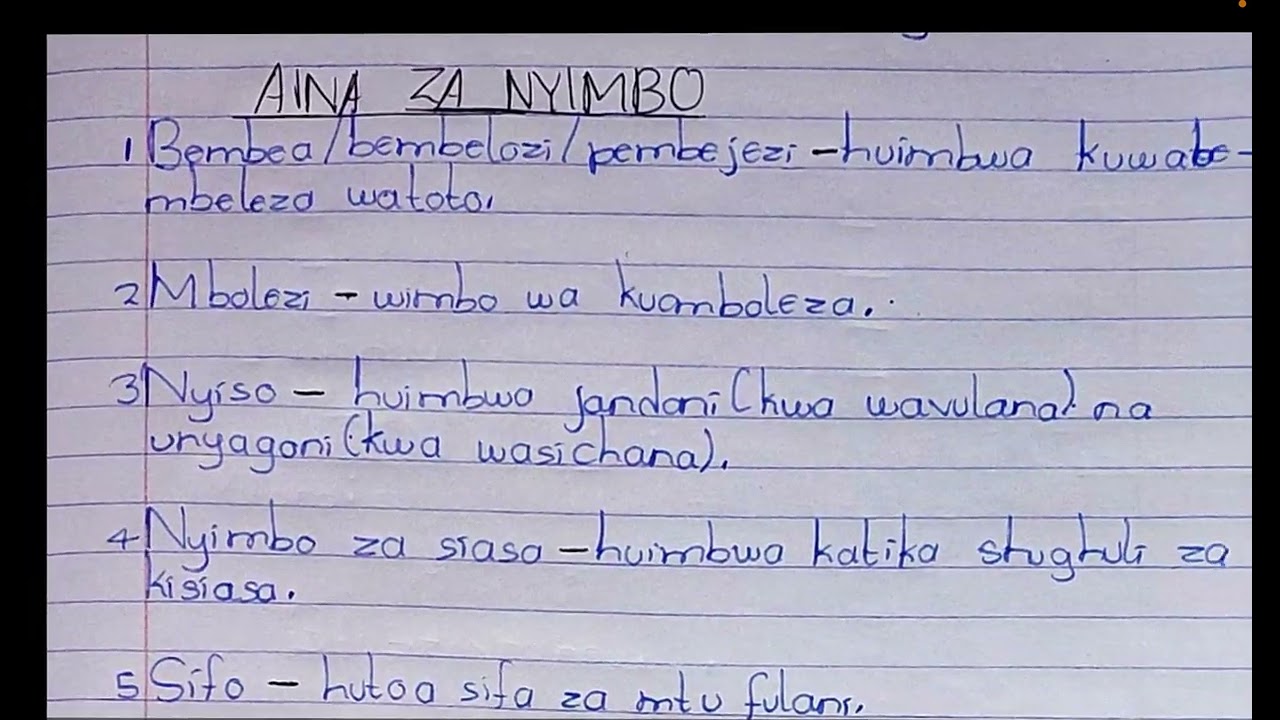 AINA ZA NYIMBO
1 Bembea/bembelezi/pembejezi - huimbwa kuwabe-
mbeleza watoto.
2 Mbolezi - wimbo wa kuomboleza.
3 Nyiso - huimbwa jandoni (kwa wavulana) na
unyagoni (kwa wasichana).
4 Nyimbo za siasa - huimbwa katika shughuli za
kisiasa.
5 Sifo - hutoa sifa za mtu fulani.